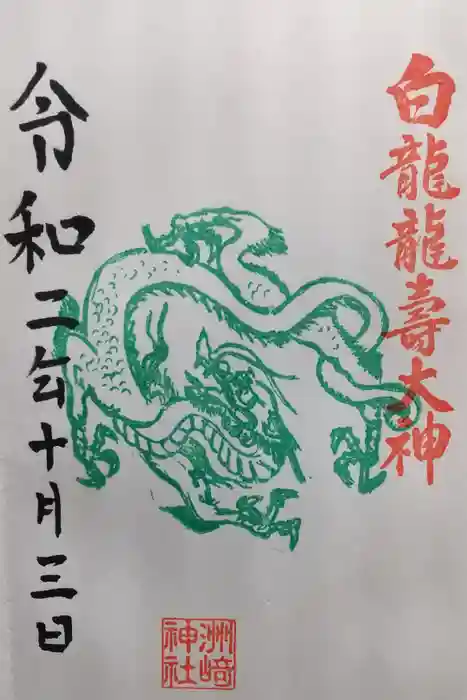 白龍龍壽大神
令和二年十月三日
洲﨑
神社